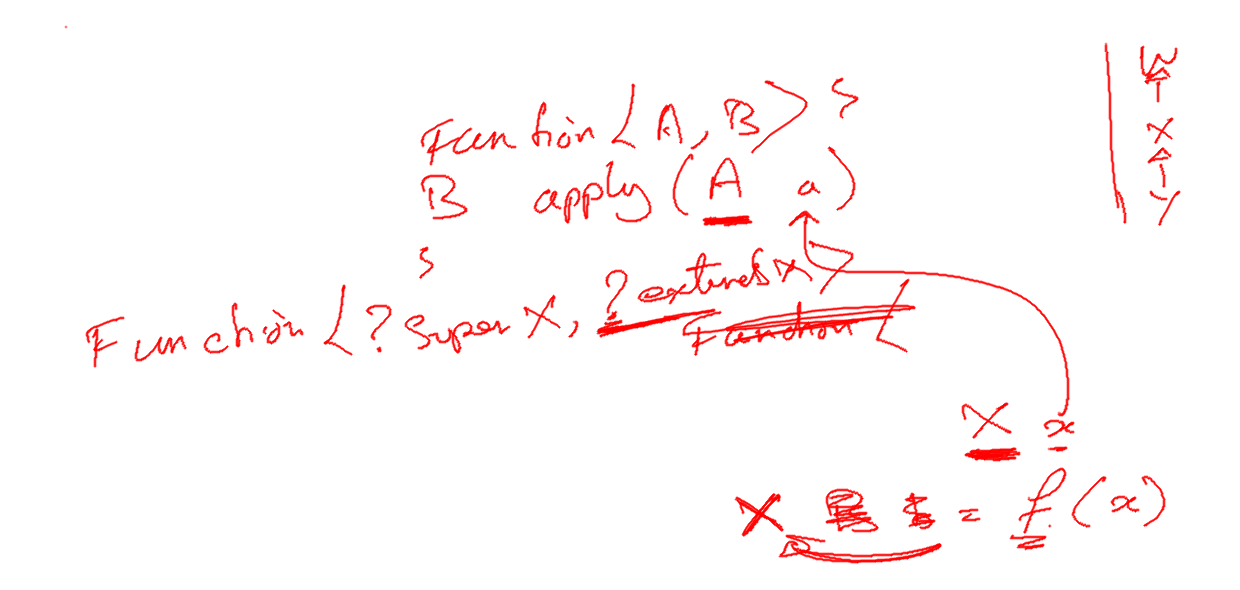 Function<A, B> {
B apply(A a)
}
Function<? super X, ? extends X>
Function<
X x
X = f(x)
W
X
Y